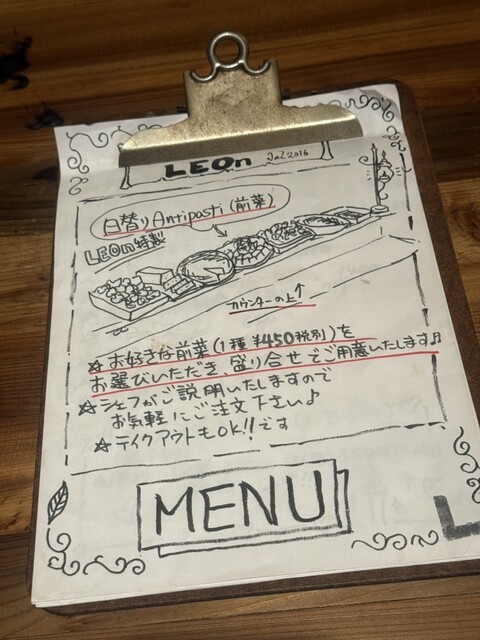 LEOn
日替りAntipasti(前菜)
LEOn特製
カウンターの上↑
☆お好きな前菜(1種 ¥450税別)を
お選びいただき、盛り合せでご用意いたします♪
☆シェフがご説明いたしますので
お気軽にご注文下さい♪
☆テイクアウトもOK!!です
MENU
L